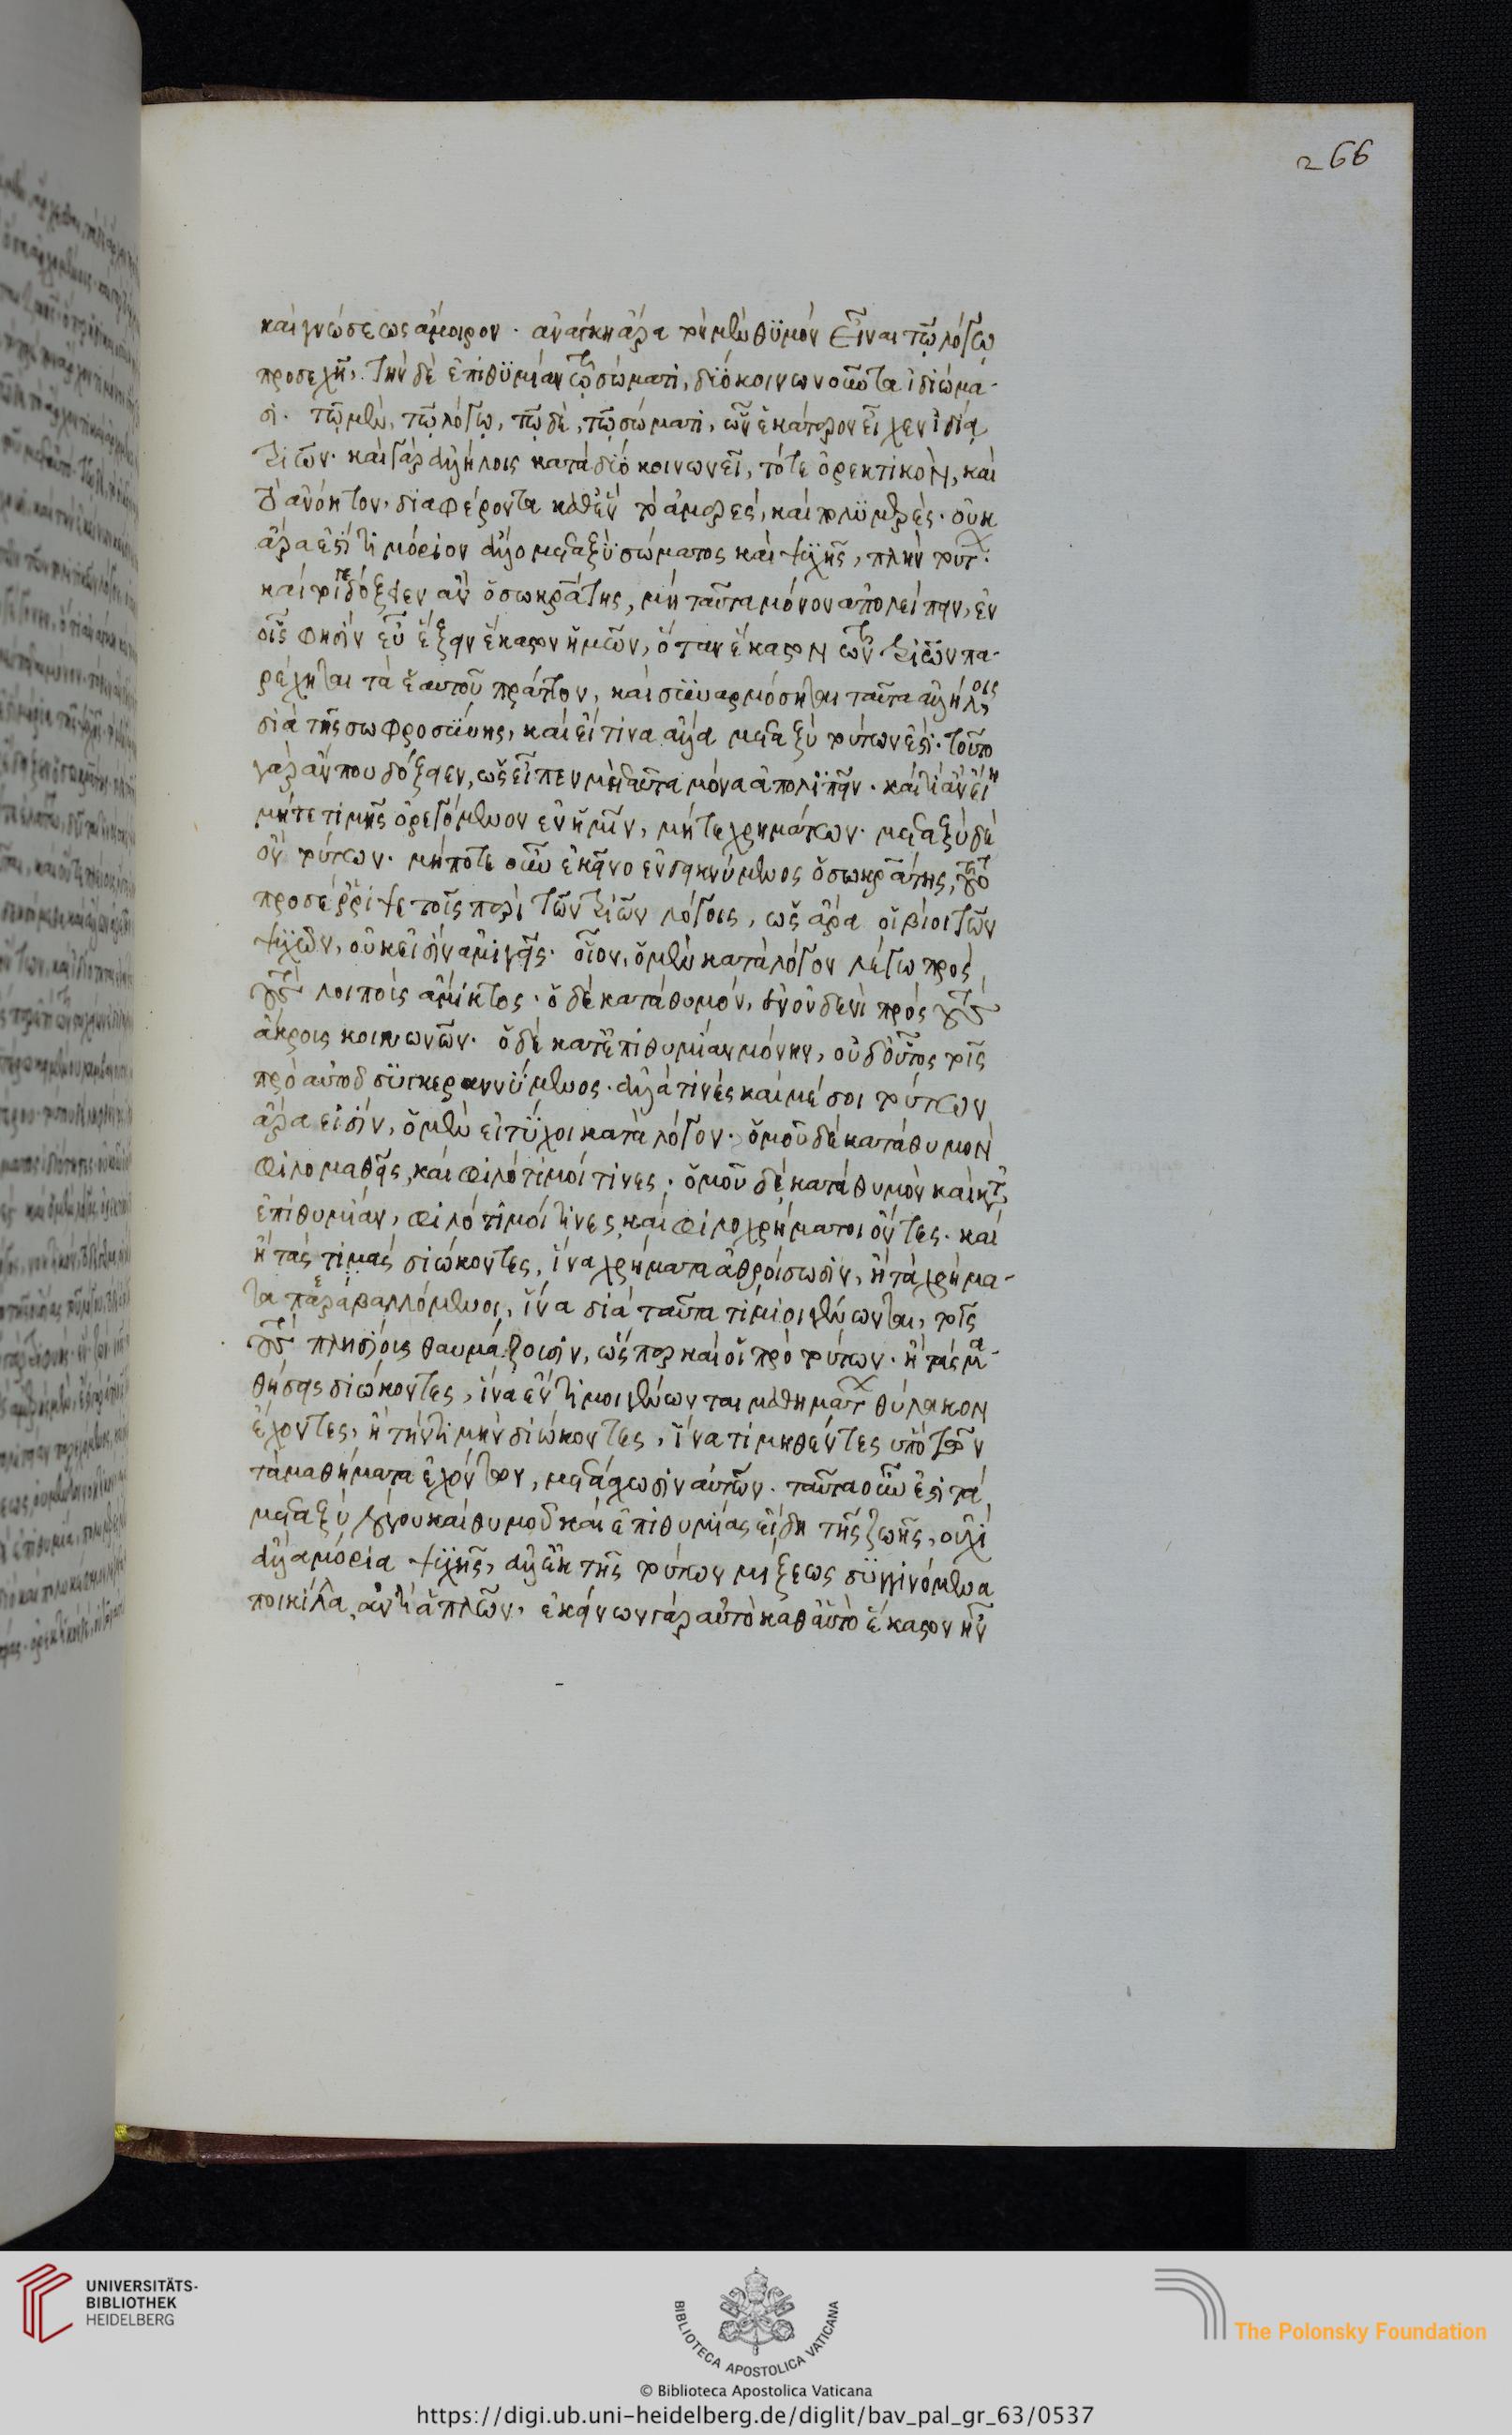 266
καὶ γνώσεως ἄμοιρον. ἀνάγκη ἄρα τὸν μὲν θυμὸν εἶναι τῷ λόγῳ
προσεχῆ, τὴν δὲ ἐπιθυμίαν τῷ σώματι, δύο κοινωνοῦντα ἰδιώμα-
σι. τῷ μὲν, τῷ λόγῳ, τῷ δὲ, τῷ σώματι, ὧν ἑκάτερον εἶχεν ἰδίᾳ
τριῶν. καὶ γὰρ ἀλλήλοις κατὰ δύο κοινωνεῖ, τό τε ὀρεκτικὸν, καὶ
τὸ ἀνόητον. διαφέροντα καθ' ἓν τὸ ἀμερὲς, καὶ πλημερὲς. οὐκ
ἄρα ἐστί τι μόριον ἄλλο μεταξὺ σώματος καὶ ψυχῆς, πλὴν τούτων.
καί τοί γε δόξειεν ἂν ὁ σωκράτης, μὴ ταῦτα μόνον ἀπολείπειν, ἐν
οἷς φησὶν εὖ ἕξειν ἕκαστον ἡμῶν, ὅταν ἕκαστον τῶν τριῶν πα-
ρέχηται τὰ ἑαυτοῦ πράττον, καὶ συναρμόσηται ταῦτα ἀλλήλοις
διὰ τῆς σωφροσύνης, καὶ εἴ τινα ἄλλα μεταξὺ τούτων ἐστί. τοῦτο
γὰρ ἄν που δόξειεν, ὡς εἶπεν μὴ ταῦτα μόνα ἀπολιπεῖν. καὶ τί ἂν εἴη
μήτε τιμῆς ὀρεγόμενον ἐν ἡμῖν, μήτε χρημάτων. μεταξὺ δὲ
ὂν τούτων. μήποτε οὖν ἐκεῖνο ἐνδεικνύμενος ὁ σωκράτης, τοῦτο
προσέρριψε τοῖς περὶ τῶν τριῶν λόγοις, ὡς ἄρα οἱ βίοι τῶν
ψυχῶν, οὐκ εἰσὶν ἀμιγεῖς. οἷον, ὁ μὲν κατὰ λόγον λέγω πρὸς
τοὺς λοιποὺς ἄμικτος. ὁ δὲ κατὰ θυμὸν, ἐν οὐδενὶ πρὸς τοὺς
ἄκροις κοινωνῶν. ὁ δὲ κατ' ἐπιθυμίαν μόνην, οὐδ' οὗτος τοῖς
πρὸ αὐτοῦ συγκεραννύμενος. ἀλλά τινὲς καὶ μέσοι τούτων
ἄρα εἰσὶν, ὁ μὲν εἰ τύχοι κατὰ λόγον. ὁμοῦ δὲ κατὰ θυμὸν
φιλομαθεῖς, καὶ φιλότιμοί τινες. ὁμοῦ δὲ κατὰ θυμὸν καὶ κατ'
ἐπιθυμίαν, φιλότιμοί τινες καὶ φιλοχρήματοι ὄντες. καὶ
ἢ τὰς τιμὰς διώκοντες, ἵνα χρήματα ἀθροίσωσιν, ἢ τὰ χρήμα-
τα παραβαλλόμενοι, ἵνα διὰ ταῦτα τίμιοι γένωνται, τοῖς
τοὺς πλησίοις θαυμάζουσιν, ὥσπερ καὶ οἱ πρὸ τούτων. ἢ τὰς μα-
θήσεις διώκοντες, ἵνα ἔντιμοι γένωνται μαθημάτων θύλακον
ἔχοντες, ἢ τὴν τιμὴν διώκοντες, ἵνα τιμηθέντες ὑπὸ τῶν
τὰ μαθήματα ἐχόντων, μετάσχωσιν αὐτῶν. ταῦτα οὖν ἐστι τὰ
μεταξὺ λόγου καὶ θυμοῦ καὶ ἐπιθυμίας εἴδη τῆς ζωῆς, οὐχὶ
ἄλλα μόρια ψυχῆς, ἀλλ' ἐκ τῆς τούτων μίξεως συγγινόμενα
ποικίλα, ἀντὶ ἁπλῶν. ἐκείνων γὰρ αὐτὸ καθ' αὑτὸ ἕκαστον ἦν
UNIVERSITÄTS-
BIBLIOTHEK
HEIDELBERG
BIBLIOTECA APOSTOLICA VATICANA
The Polonsky Foundation
© Biblioteca Apostolica Vaticana
https://digi.ub.uni-heidelberg.de/diglit/bav_pal_gr_63/0537